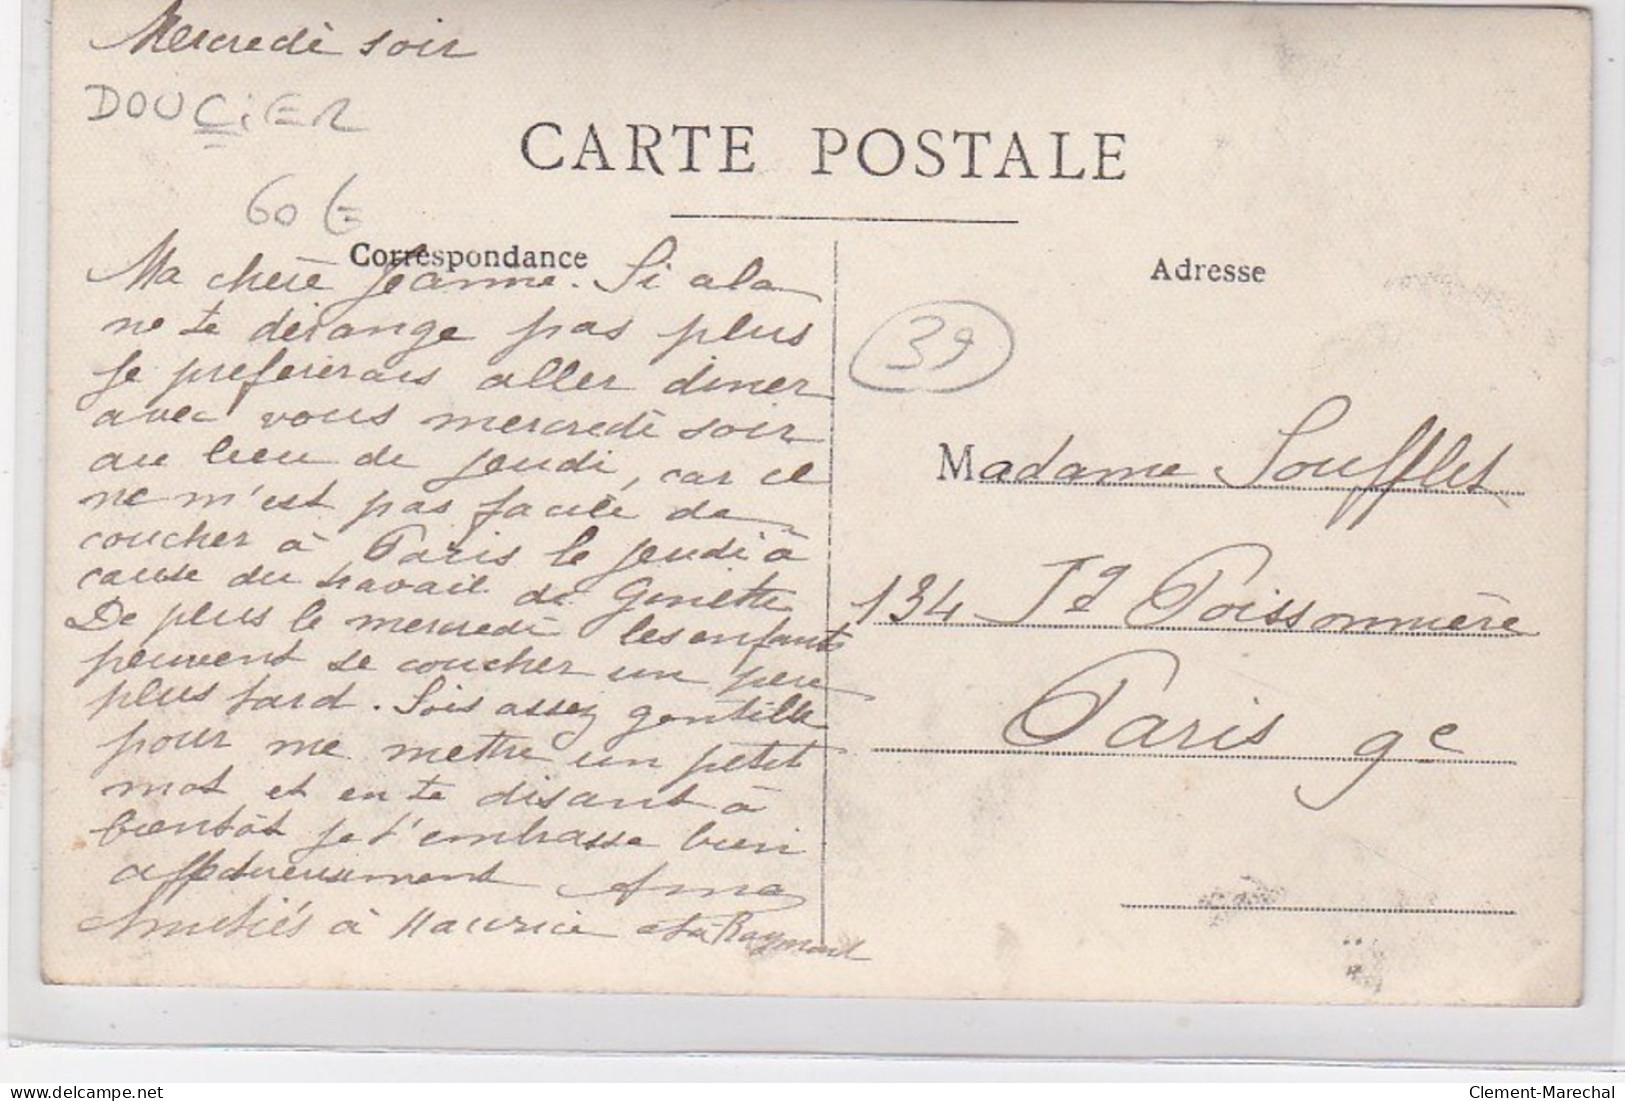 Mercredi soir
DOUCiER
CARTE POSTALE
60 €
Correspondance
Adresse
Ma chère Jeanne. Si cela
ne te dérange pas plus
je prefererais aller diner
avec vous mercredi soir
au lieu de jeudi, car il
ne m'est pas facile de
coucher à Paris le jeudi à
cause du travail de Ginette
De plus le mercredi les enfants
peuvent se coucher un peu
plus tard. Sois assez gentille
pour me mettre un petit
mot et en te disant à
bientôt je t'embrasse bien
affectueusement Anna
Amitiés à Maurice et à Raymond
39
Madame Soufflet
134 Fg Poissonnière
Paris 9e
Clement-Marechal